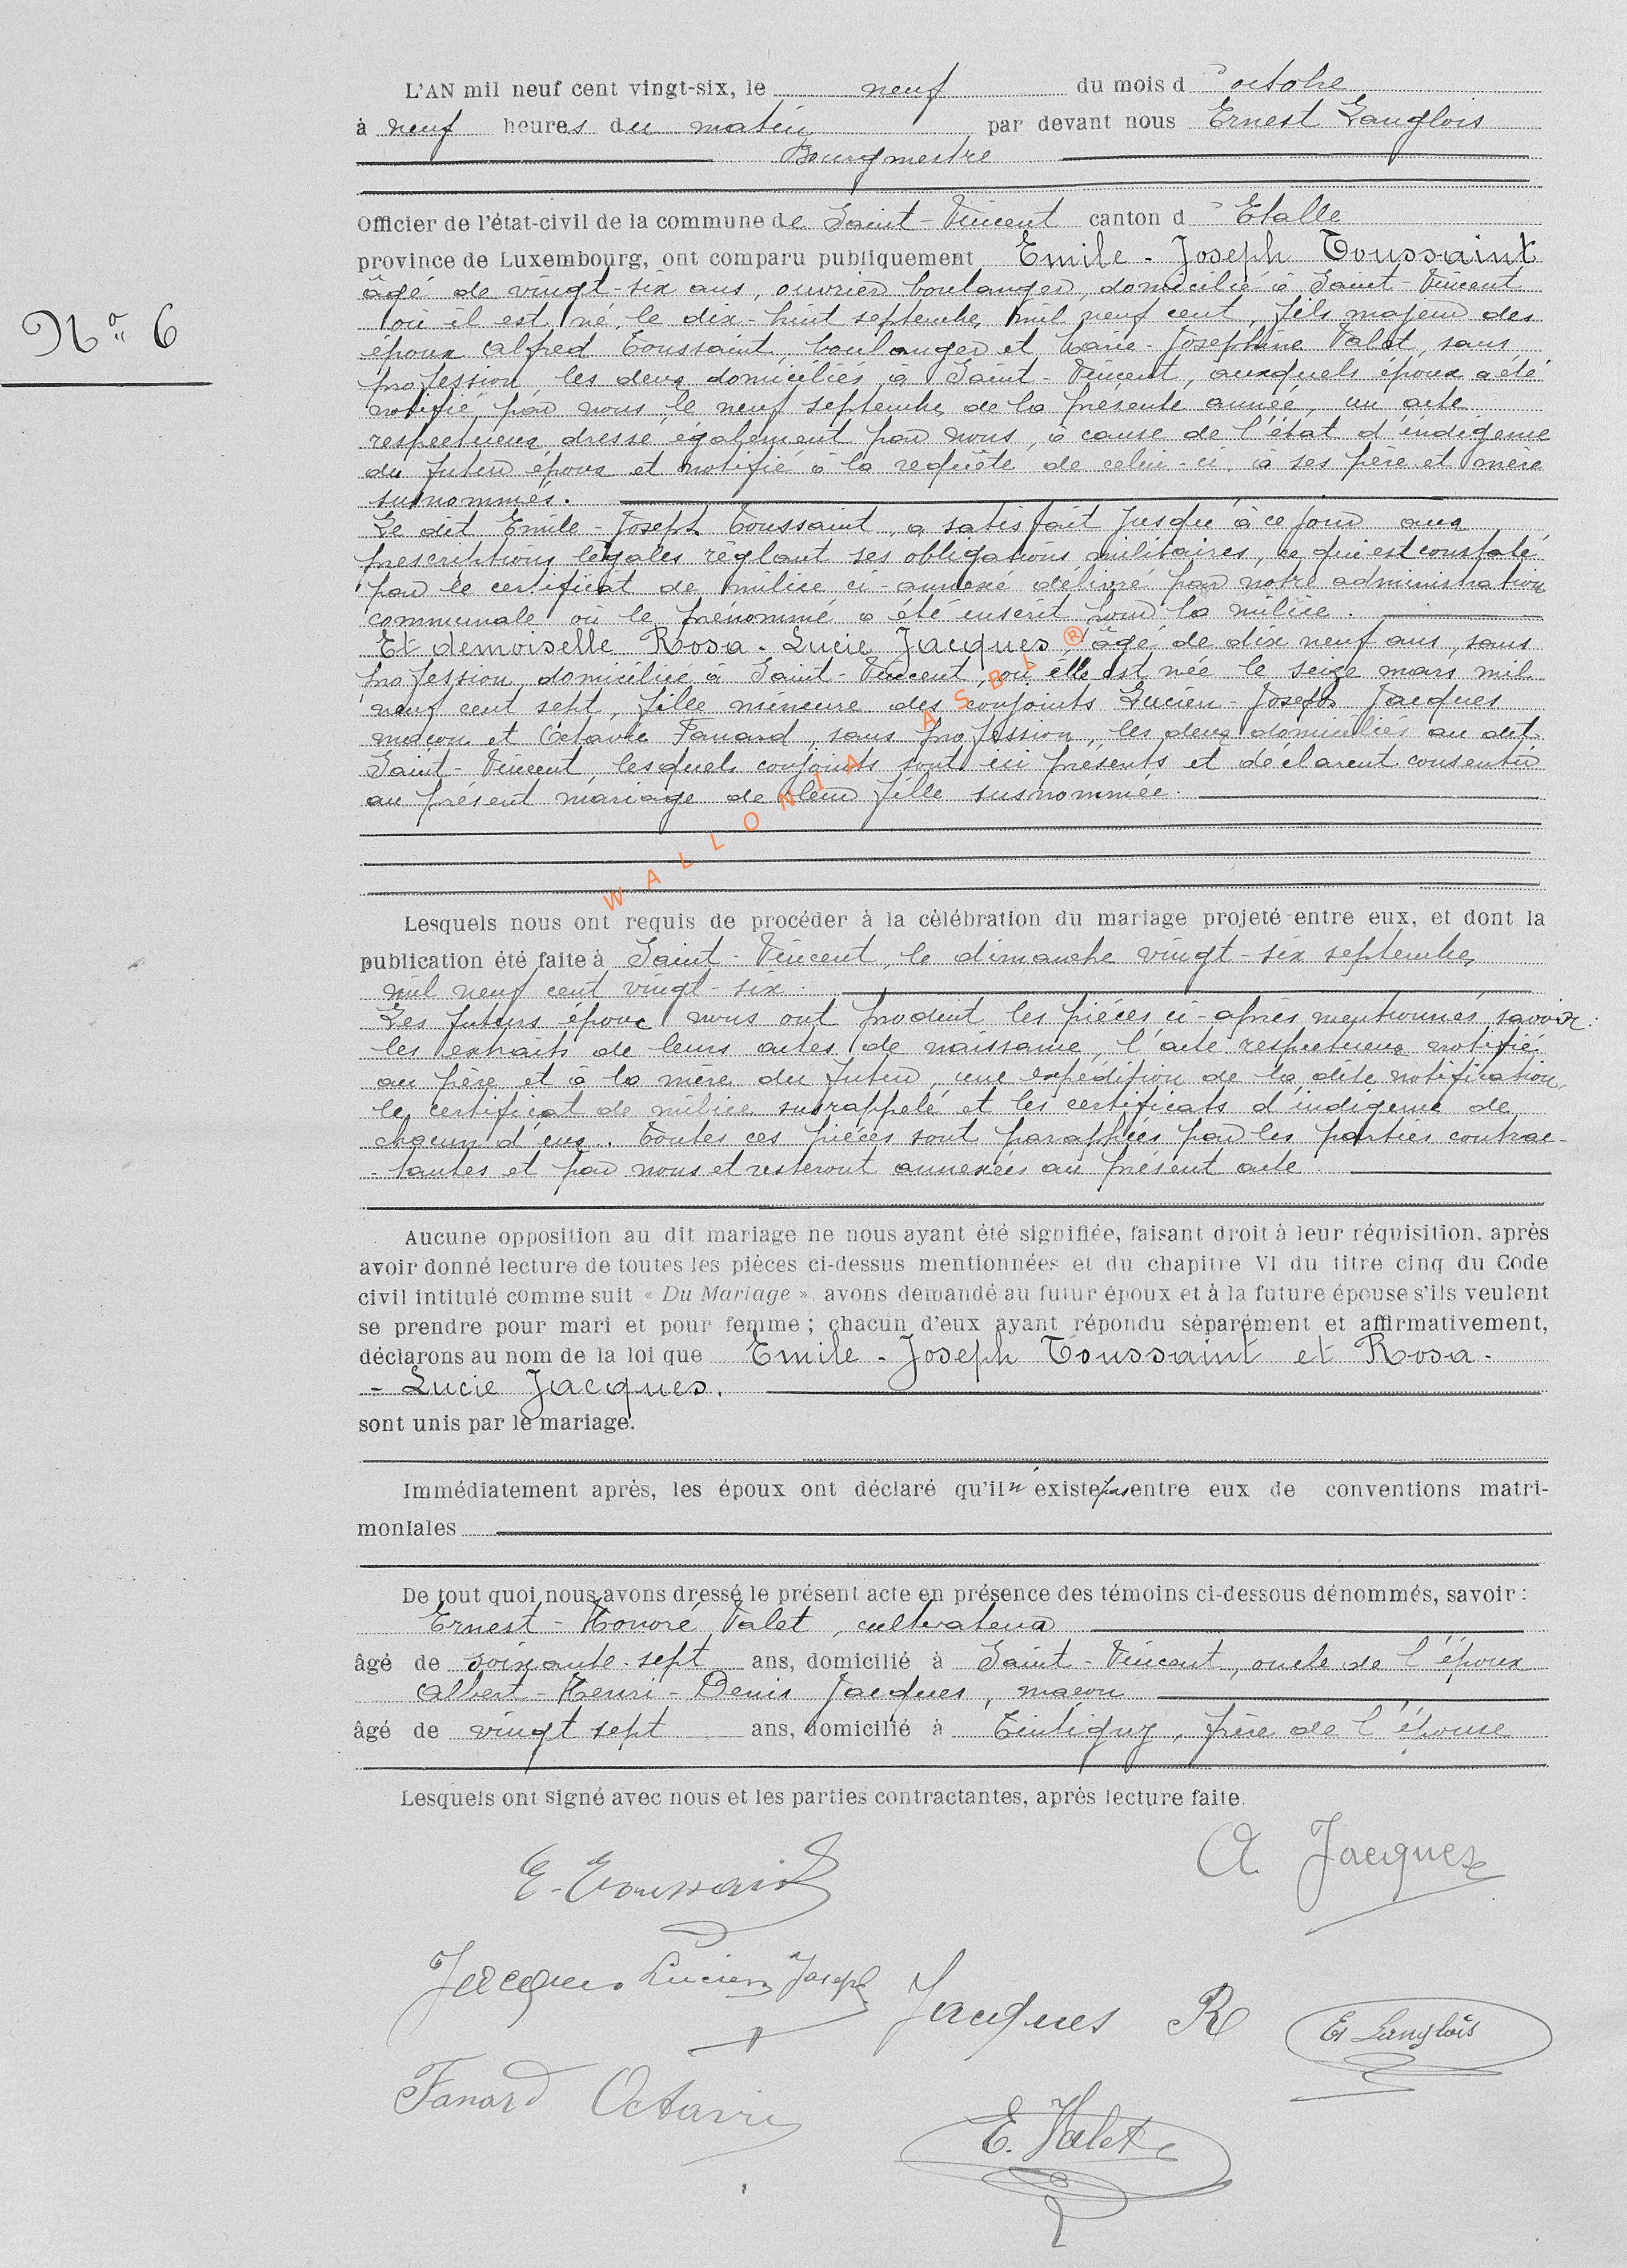 L'AN mil neuf cent vingt-six, le neuf du mois d'octobre
à neuf heures du matin par devant nous Ernest Langlois
Bourgmestre
Officier de l'état-civil de la commune de Saint-Vincent canton d'Etalle
province de Luxembourg, ont comparu publiquement Emile-Joseph Toussaint
âgé de vingt-six ans, ouvrier boulanger, domicilié à Saint-Vincent
N° 6
où il est né, le dix-huit septembre mil neuf cent, fils majeur des
époux Alfred Toussaint, boulanger et Marie-Joséphine Valet, sans
profession, les deux domiciliés à Saint-Vincent, auxquels époux a été
notifié, par nous le neuf septembre de la présente année, un acte
respectueux dressé également par nous, à cause de l'état d'indigence
du futur époux et notifié à la requête de celui-ci à ses père et mère
susnommés.
Le dit Emile-Joseph Toussaint, a satisfait jusqu'à ce jour aux
prescriptions légales réglant ses obligations militaires, ce qui est constaté
par le certificat de milice ci-annexé délivré par notre administration
communale où le prénommé a été inscrit pour la milice.
Et demoiselle Rosa-Lucie Jacques, âgé de dix neuf ans, sans
profession domiciliée à Saint-Vincent, où elle est née le seize mars mil
neuf cent sept, fille mineure des conjoints Lucien-Joseph Jacques
maçon et Octavie Fanard, sans profession, les deux domiciliés au dit
Saint-Vincent, lesquels conjoints sont ici présents et déclarent consentir
au présent mariage de leur fille susnommée.
WALLONIA ASBL ®
Lesquels nous ont requis de procéder à la célébration du mariage projeté entre eux, et dont la
publication été faite à Saint-Vincent, le dimanche vingt-six septembre
mil neuf cent vingt-six.
Les futurs époux nous ont produit les pièces ci-après mentionnées, savoir:
les extraits de leurs actes de naissance, l'acte respectueux notifié
au père et à la mère du futur, une expédition de la dite notification,
le certificat de milice susrappelé et les certificats d'indigence de
chacun d'eux. Toutes ces pièces sont paraphées par les parties contrac-
-tantes et par nous et resteront annexées au présent acte.
Aucune opposition au dit mariage ne nous ayant été signifiée, faisant droit à leur réquisition, après
avoir donné lecture de toutes les pièces ci-dessus mentionnées et du chapitre VI du titre cinq du Code
civil intitulé comme suit « Du Mariage », avons demandé au futur époux et à la future épouse s'ils veulent
se prendre pour mari et pour femme ; chacun d'eux ayant répondu séparément et affirmativement,
déclarons au nom de la loi que Emile-Joseph Toussaint et Rosa-
-Lucie Jacques.
sont unis par le mariage.
Immédiatement après, les époux ont déclaré qu'il n'existe pas entre eux de conventions matri-
moniales
De tout quoi nous avons dressé le présent acte en présence des témoins ci-dessous dénommés, savoir :
Ernest-Honoré Valet, cultivateur
âgé de soixante-sept ans, domicilié à Saint-Vincent, oncle de l'époux
Albert-Henri-Denis Jacques, maçon
âgé de vingt sept ans, domicilié à Tintigny, frère de l'épouse
Lesquels ont signé avec nous et les parties contractantes, après lecture faite.
E. Toussaint
A Jacques
Jacques Lucien Joseph
Jacques R
Et Langlois
Fanard Octavie
E. Valet